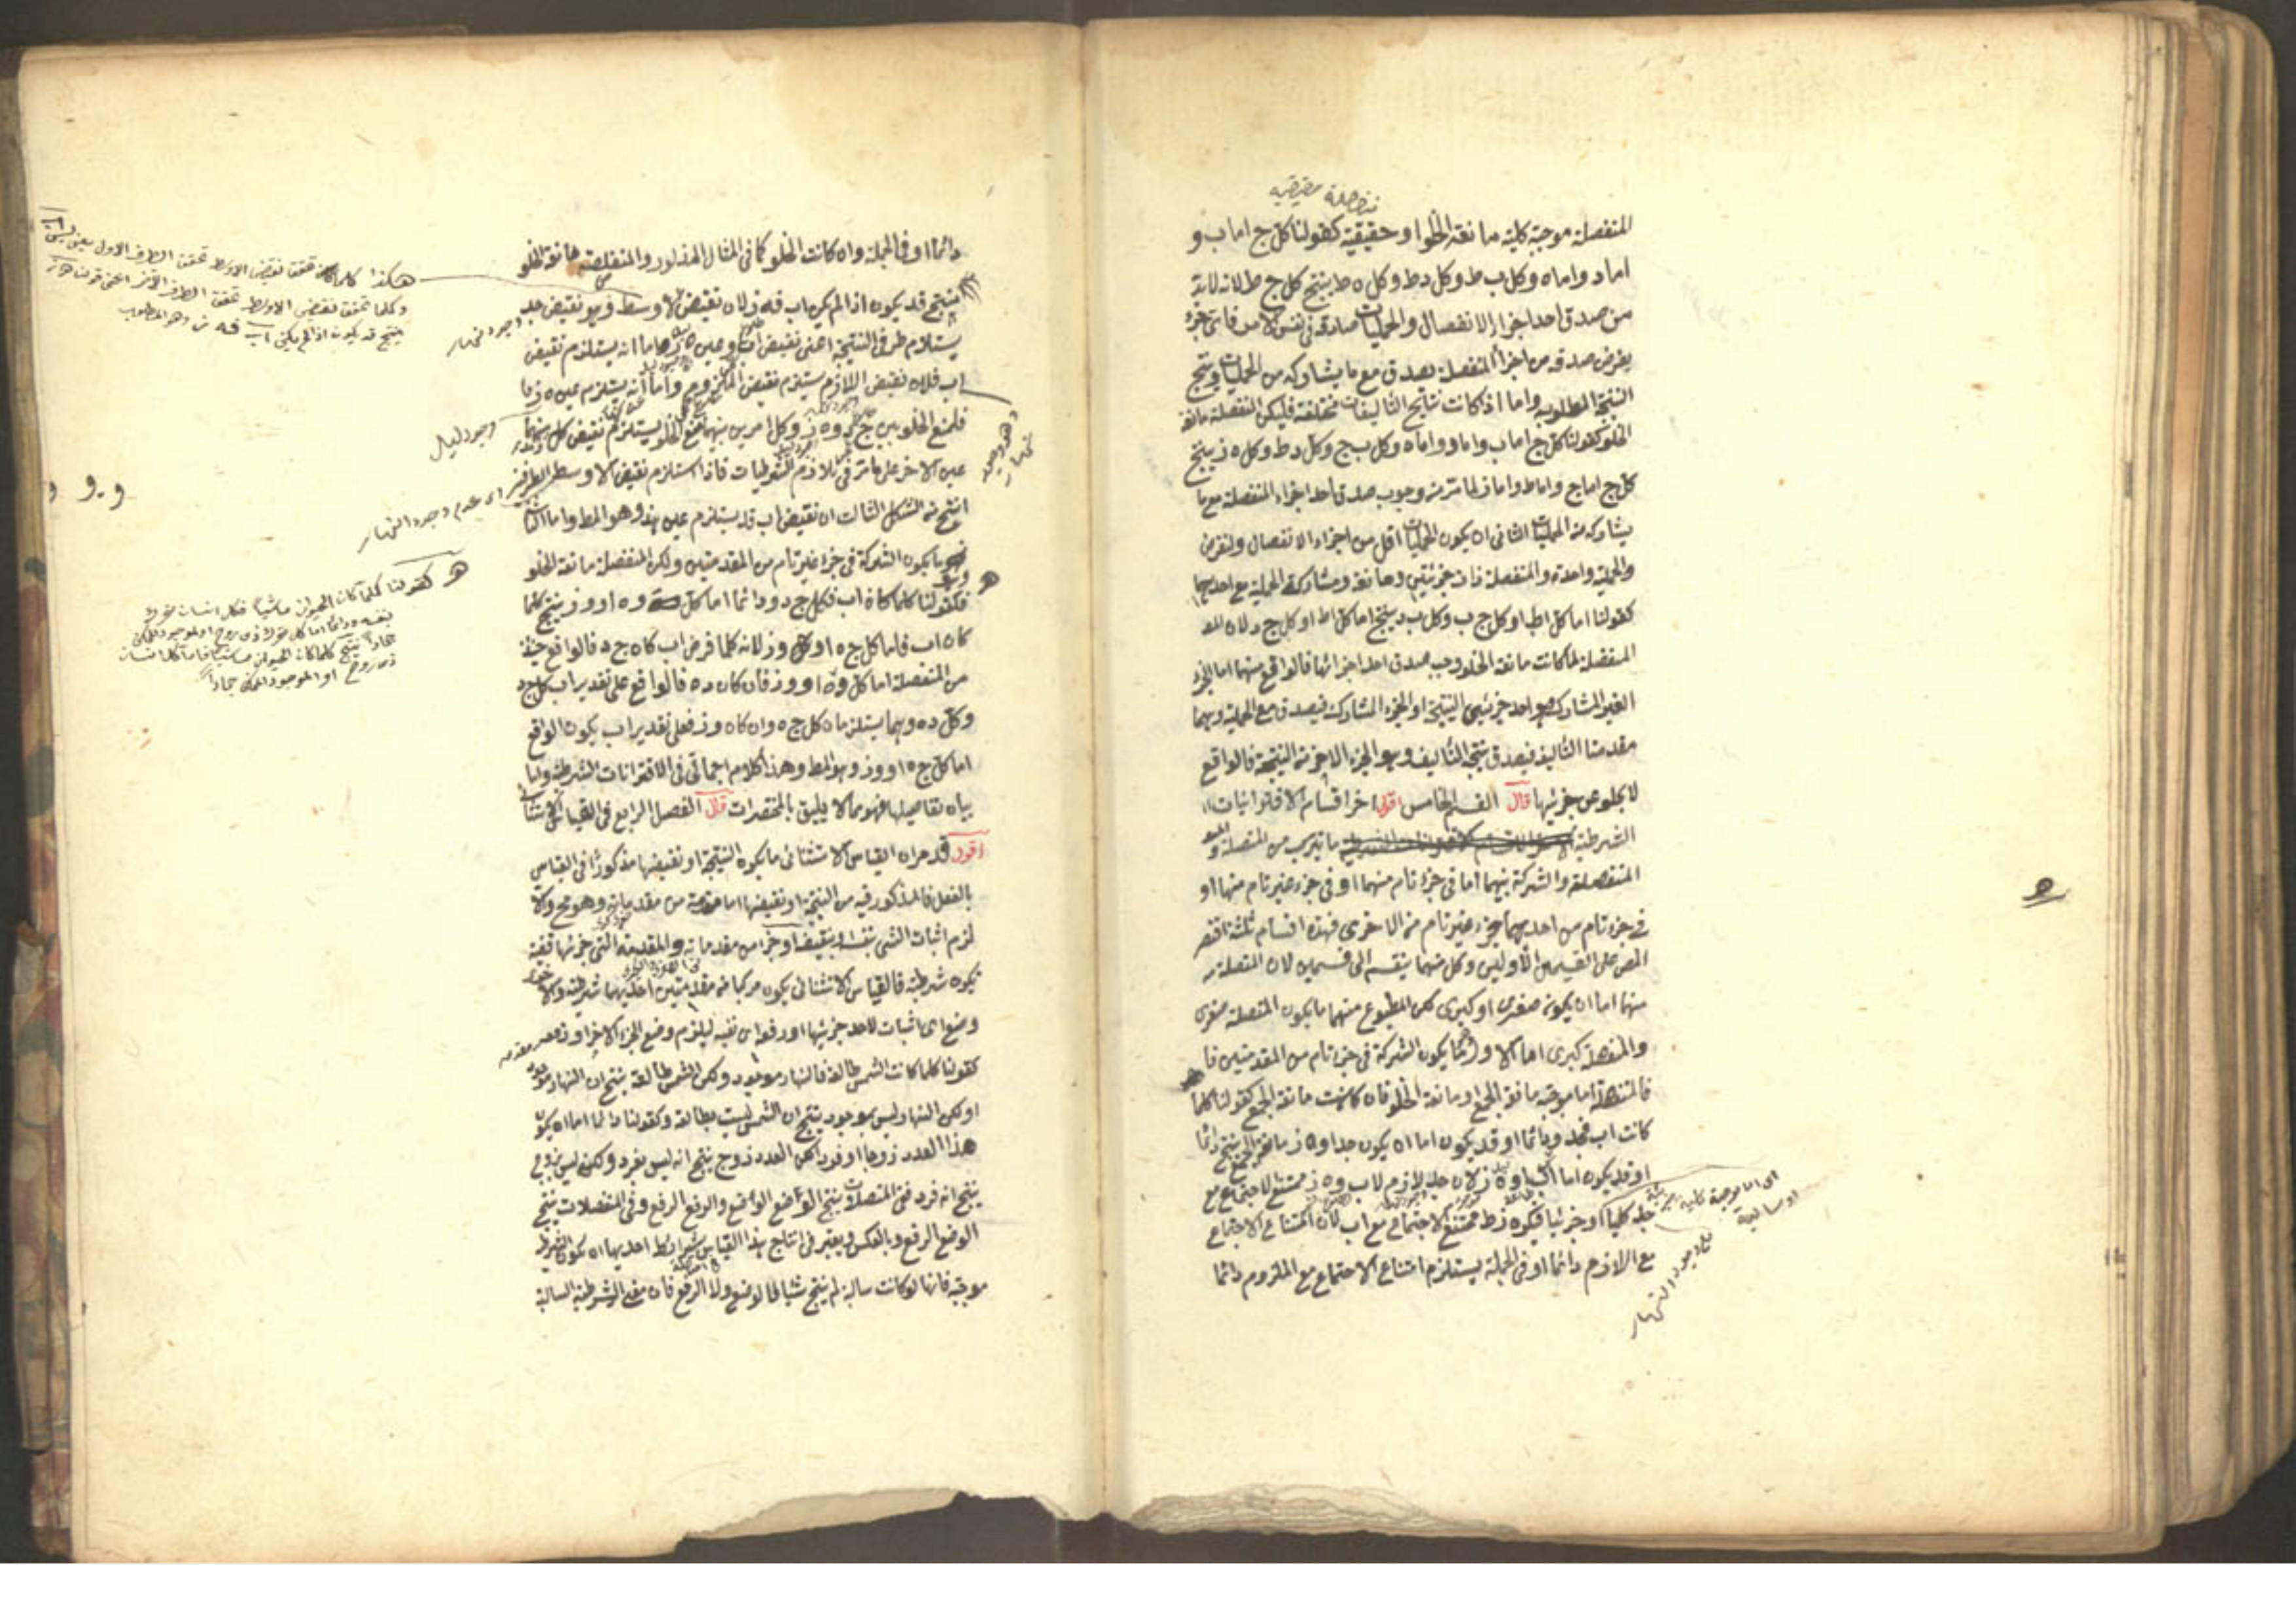 منفصلة حقيقية
المنفصلة موجبة كلية مانعة الخلو او حقيقية كقولنا كل ج اما ب و
اما د واما ه وكل ب ط وكل د ط وكل ه ط ينتج كل ج ط لانه لابد
من صدق احد اجزاء الانفصال والحمليات صادقة في نفس الامر فاى جزء
يفرض صدقه من اجزاء المنفصلة يصدق مع ما يشاركه من الحمليات وينتج
النتيجة المطلوبة واما اذا كانت نتايج التأليفات مختلفة فليكن المنفصلة مانعة
الخلو كقولنا كل ج اما ب واما د واما ه وكل ب ج وكل د ط وكل ه ز ينتج
كل ج اما ج واما ط واما ز لما مر من وجوب صدق احد اجزاء المنفصلة مع ما
يشاركه من الحمليات الثاني ان يكون الحمليات اقل من اجزاء الانفصال ولنفرض
الحملية واحدة والمنفصلة ذات جزئين ومانعة ومشاركة الحملية مع احديهما
كقولنا اما كل ا ط او كل ج ب وكل ب د ينتج اما كل ا ط او كل ج د لان
المنفصلة لما كانت مانعة الخلو وجب صدق احد اجزائها فالواقع منهما اما الجزء
الغير المشارك وهو احد جزئي النتيجة او الجزء المشارك فيصدق مع الحملية وهما
مقدمتا التأليف فيصدق نتيجة التأليف وهو الجزء الاخر من النتيجة فالواقع
لا يخلو عن جزئيها قال القسم الخامس اقول اخر اقسام الاقترانيات
الشرطية ما يتركب من المتصلة و
المنفصلة والشركة بينهما اما في جزء تام منهما او في جزء غير تام منهما او
في جزء تام من احديهما جزء غير تام من الاخرى فهذه اقسام ثلثة اقتصر
المص على القسمين الاولين وكل منهما ينقسم الى قسمين لان المتصلة
منهما اما ان يكون صغرى او كبرى لكن المطبوع منهما ما يكون المتصلة صغرى
والمنفصلة كبرى اما الاول فما يكون الشركة في جزء تام من المقدمتين فا
فالمنفصلة اما موجبة مانعة الجمع او مانعة الخلو فان كانت مانعة الجمع كقولنا كلما
كانت اب فجد ودائما او قد يكون اما ان يكون جد او ه ز مانعة الجمع ينتج دائما
او قد يكون اما اب او ه ز لان جد لازم لاب و ه ز ممتنع الاجتماع مع
جد كليا او جزئيا فيكون ه ز ممتنع الاجتماع مع اب لان امتناع الاجتماع
مع اللازم دائما او في الجملة يستلزم امتناع الاجتماع مع الملزوم دائما
اى اما موجبة كلية
او سالبة
وجود النهار
دائما او في الجملة وان كانت الخلو كما في المثال المذكور والمنفصلة مانعة الخلو
ينتج قد يكون اذا لم يكن اب فه ز لان نقيض الاوسط وهو نقيض جد
يستلزم طرفي النتيجة اعنى نقيض اب وعين ه ز اما انه يستلزم نقيض
اب فلان نقيض اللازم يستلزم نقيض الملزوم واما انه يستلزم عين ه ز
فلمنع الخلو بين ج د و ه ز وكل امرين بينهما منع الخلو يستلزم نقيض كل منهما
عين الاخر على ما مر في تلازم الشرطيات فاذا استلزم نقيض الاوسط الطرفين
انتج من الشكل الثالث ان نقيض اب قد يستلزم عين ه ز وهو المط واما الثاني
ما يكون الشركة في جزء غير تام من المقدمتين ولكن المنفصلة مانعة الخلو
فكقولنا كلما كان اب فكل ج د ودائما اما كل د ه او وز ينتج كلما
كان اب فاما كل ج ه او وز لانه كلما فرض اب كان ج د فالواقع حينئذ
من المنفصلة اما كل د ه او وز فان كان د ه فالواقع على تقدير اب كل ج د
وكل د ه وهما يستلزمان كل ج ه وان كان وز فعلى تقدير اب يكون الواقع
اما كل ج ه او وز وهو المط وهذا كلام اجمالى في الاقترانات الشرطية واما
بيان تفاصيلها فهو مما لا يليق بالمختصرات قال الفصل الرابع في القياس الاستثنائي
اقول قد مر ان القياس الاستثنائى ما يكون النتيجة او نقيضها مذكورا في القياس
بالفعل فالمذكور فيه من النتيجة او نقيضها اما مقدمة من مقدماته وهو مح والا
لزم اثبات الشئ بنفسه او بنقيضه او جزء من مقدماته والمقدمة التى جزئها قضية
يكون شرطية فالقياس الاستثنائى يكون مركبا من مقدمتين احديهما شرطية والاخرى
وضع اى اثبات لاحد جزئيها او رفع اى نفيه ليلزم وضع الجزء الاخر او رفعه
كقولنا كلما كانت الشمس طالعة فالنهار موجود ولكن الشمس طالعة ينتج ان النهار موجود
او لكن النهار ليس بموجود ينتج ان الشمس ليست بطالعة وكقولنا دائما اما ان يكون
هذا العدد زوجا او فردا لكن العدد زوج ينتج انه ليس بفرد ولكن ليس بزوج
ينتج انه فرد ففى المتصلات ينتج الوضع الوضع والرفع الرفع وفي المنفصلات ينتج
الوضع الرفع وبالعكس ويعتبر في انتاج هذا القياس شرائط احديها ان يكون الشرطية
موجبة فانها لو كانت سالبة لم ينتج شيئا لا الوضع ولا الرفع فان معنى الشرطية السالبة
هكذا كلما تحقق نقيض الاوسط تحقق الطرف الاول
وكلما تحقق نقيض الاوسط تحقق الطرف الاخر
ينتج قد يكون اذا لم يكن اب فه ز وهو المطلوب
وجود نهار
وجود ليل
اى عدم وجود النهار
وهو وجود نهار
كقولنا كلما كان الحيوان ماشيا فكل انسان
جمادا ينتج كلما كان الحيوان ماشيا فاما كل انسان
ذى روح او الموجود الممكن جمادا